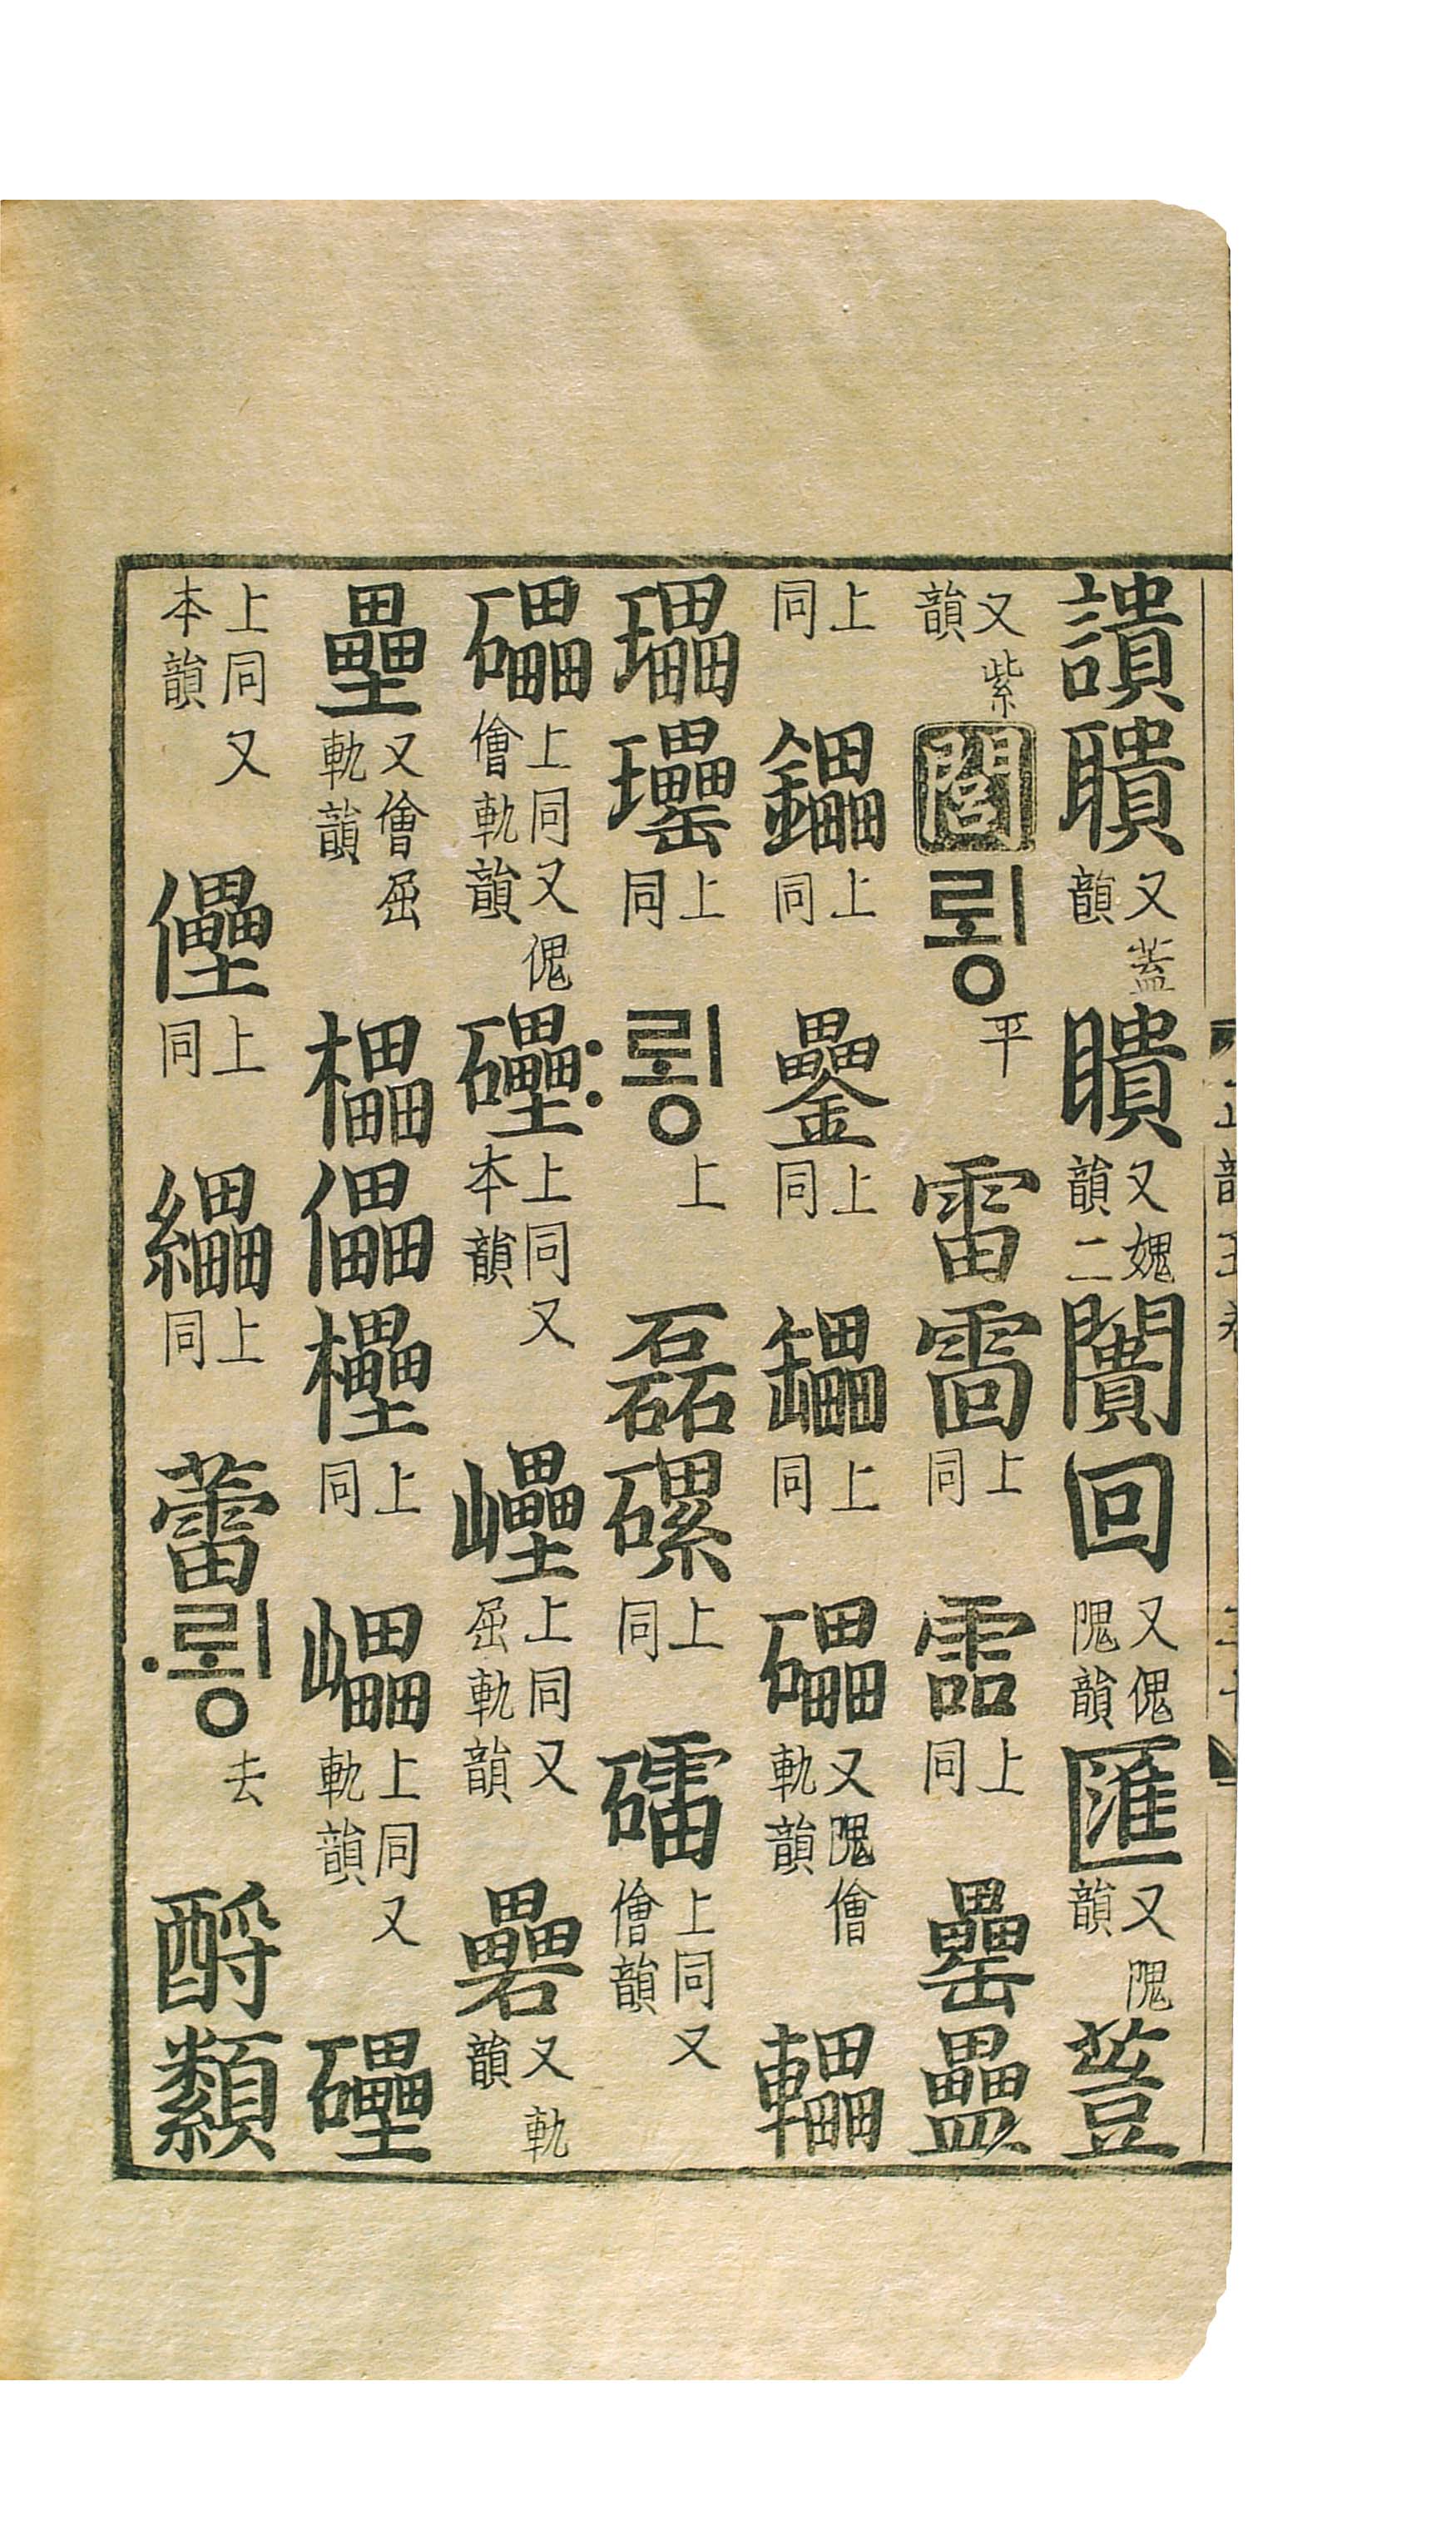 聵又蓋韻瞶又媿韻二闠回又傀隗韻匯又隗韻荳
又紫韻閭룅平雷䨓上同上同罍
上同鑘上同上同上同礧又隗儈軌韻轠
瓃上同룅上磊磥上同礌上同又儈韻
礧上同又傀儈軌韻上同又本韻上同又屈軌韻礨又軌韻
壘又儈屈軌韻櫑儡上同上同又軌韻
上同又本韻上同纝上同蕾룅去酹纇